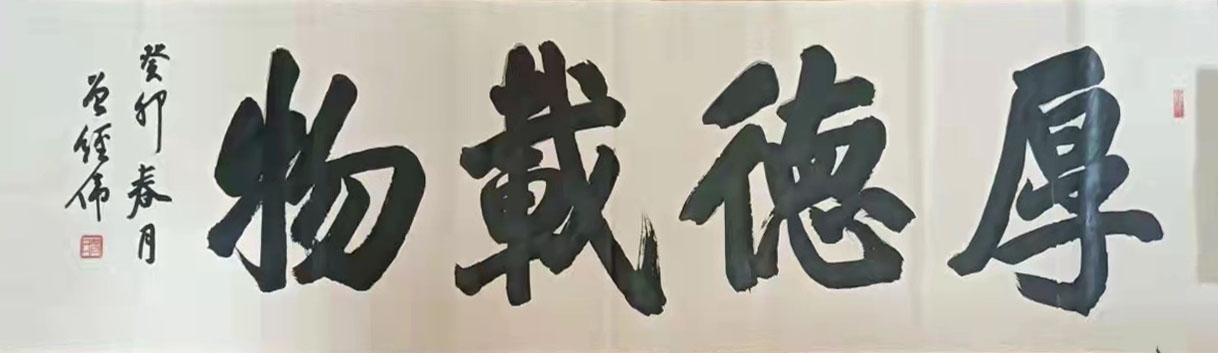 厚德載物
癸卯春月
曾經偉